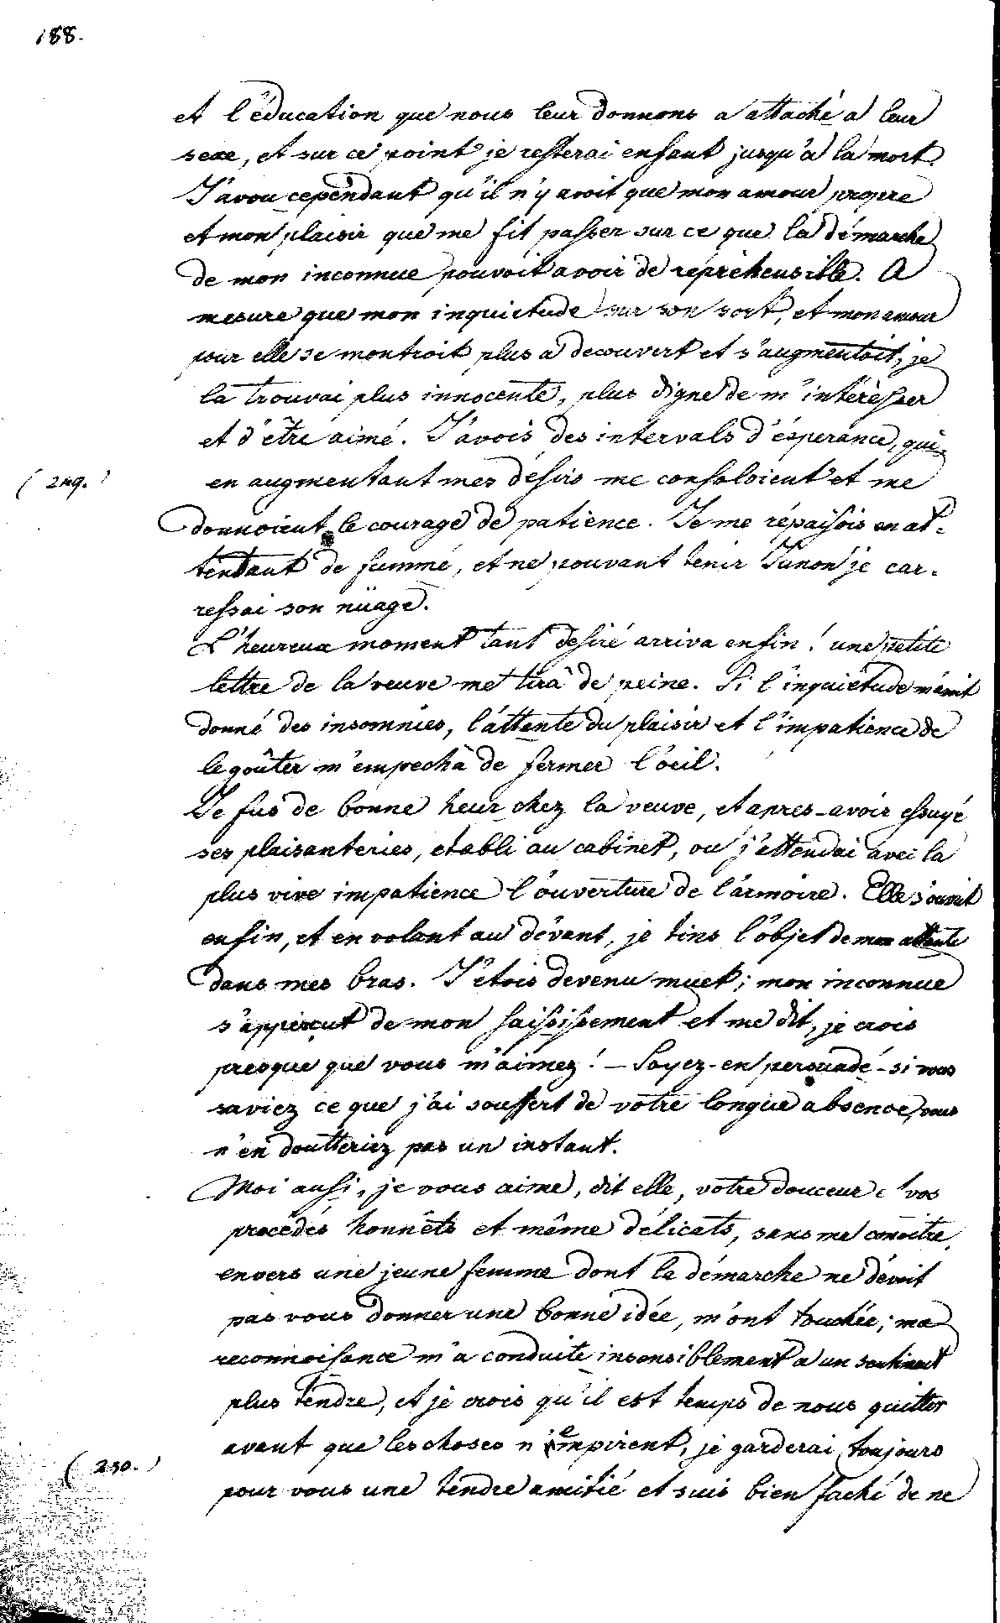 188.
et l'éducation que nous leur donnons a attaché a leur
sexe, et sur ce point je resterai enfant jusqu'à la mort.
J'avou cependant qu'il n'y avoit que mon amour propre
et mon plaisir que me fit passer sur ce que la démarche
de mon inconnue pouvoit avoir de répréhensible. A
mesure que mon inquietude sur son sort, et mon amour
pour elle se montroit plus a decouvert et s'augmentoit, je
la trouvai plus innocente, plus digne de m'intérèsser
et d'être aimé. J'avois des intervals d'ésperance, qui
(249.)
en augmentant mes désirs me consoloient et me
donnoient le courage de patience. Je me répaissois en at-
tendant de fummé, et ne pouvant tenir Junon je car-
ressai son nüage.
L'heureux moment tant desiré arriva enfin! une petite
lettre de la veuve me tira de peine. Si l'inquiétude m'avoit
donné des insomnies, l'áttente du plaisir et l'impatience de
le goûter m'empecha de fermer l'oeil.
Je fus de bonne heur chez la veuve, et apres-avoir essuyé
ses plaisanteries, etabli au cabinet, ou j'attendai avec la
plus vive impatience l'ouverture de l'armoire. Elle s'ouvrit
enfin, et en volant au dévant, je tins l'objet de mon attente
dans mes bras. J'étois devenu muet; mon inconnue
s'apperçut de mon saisissement et me dit, je crois
presque que vous m'aimez! – Soyez-en persuadé – si vous
saviez ce que j'ai souffert de votre longue absence, vous
n'en doutteriez pas un instant.
Moi aussi, je vous aime, dit elle, votre douceur et vos
procédés honnêts et même délicats, sans me connoitre,
envers une jeune femme dont la démarche ne dévoit
pas vous donner une bonne idée, m'ont touchée; ma
reconnoissance m'a conduite insensiblement a un sentiment
plus tendre, et je crois qu'il est temps de nous quitter
avant que les choses n'empirent, je garderai toujours
(250.)
pour vous une tendre amitié et suis bien faché de ne